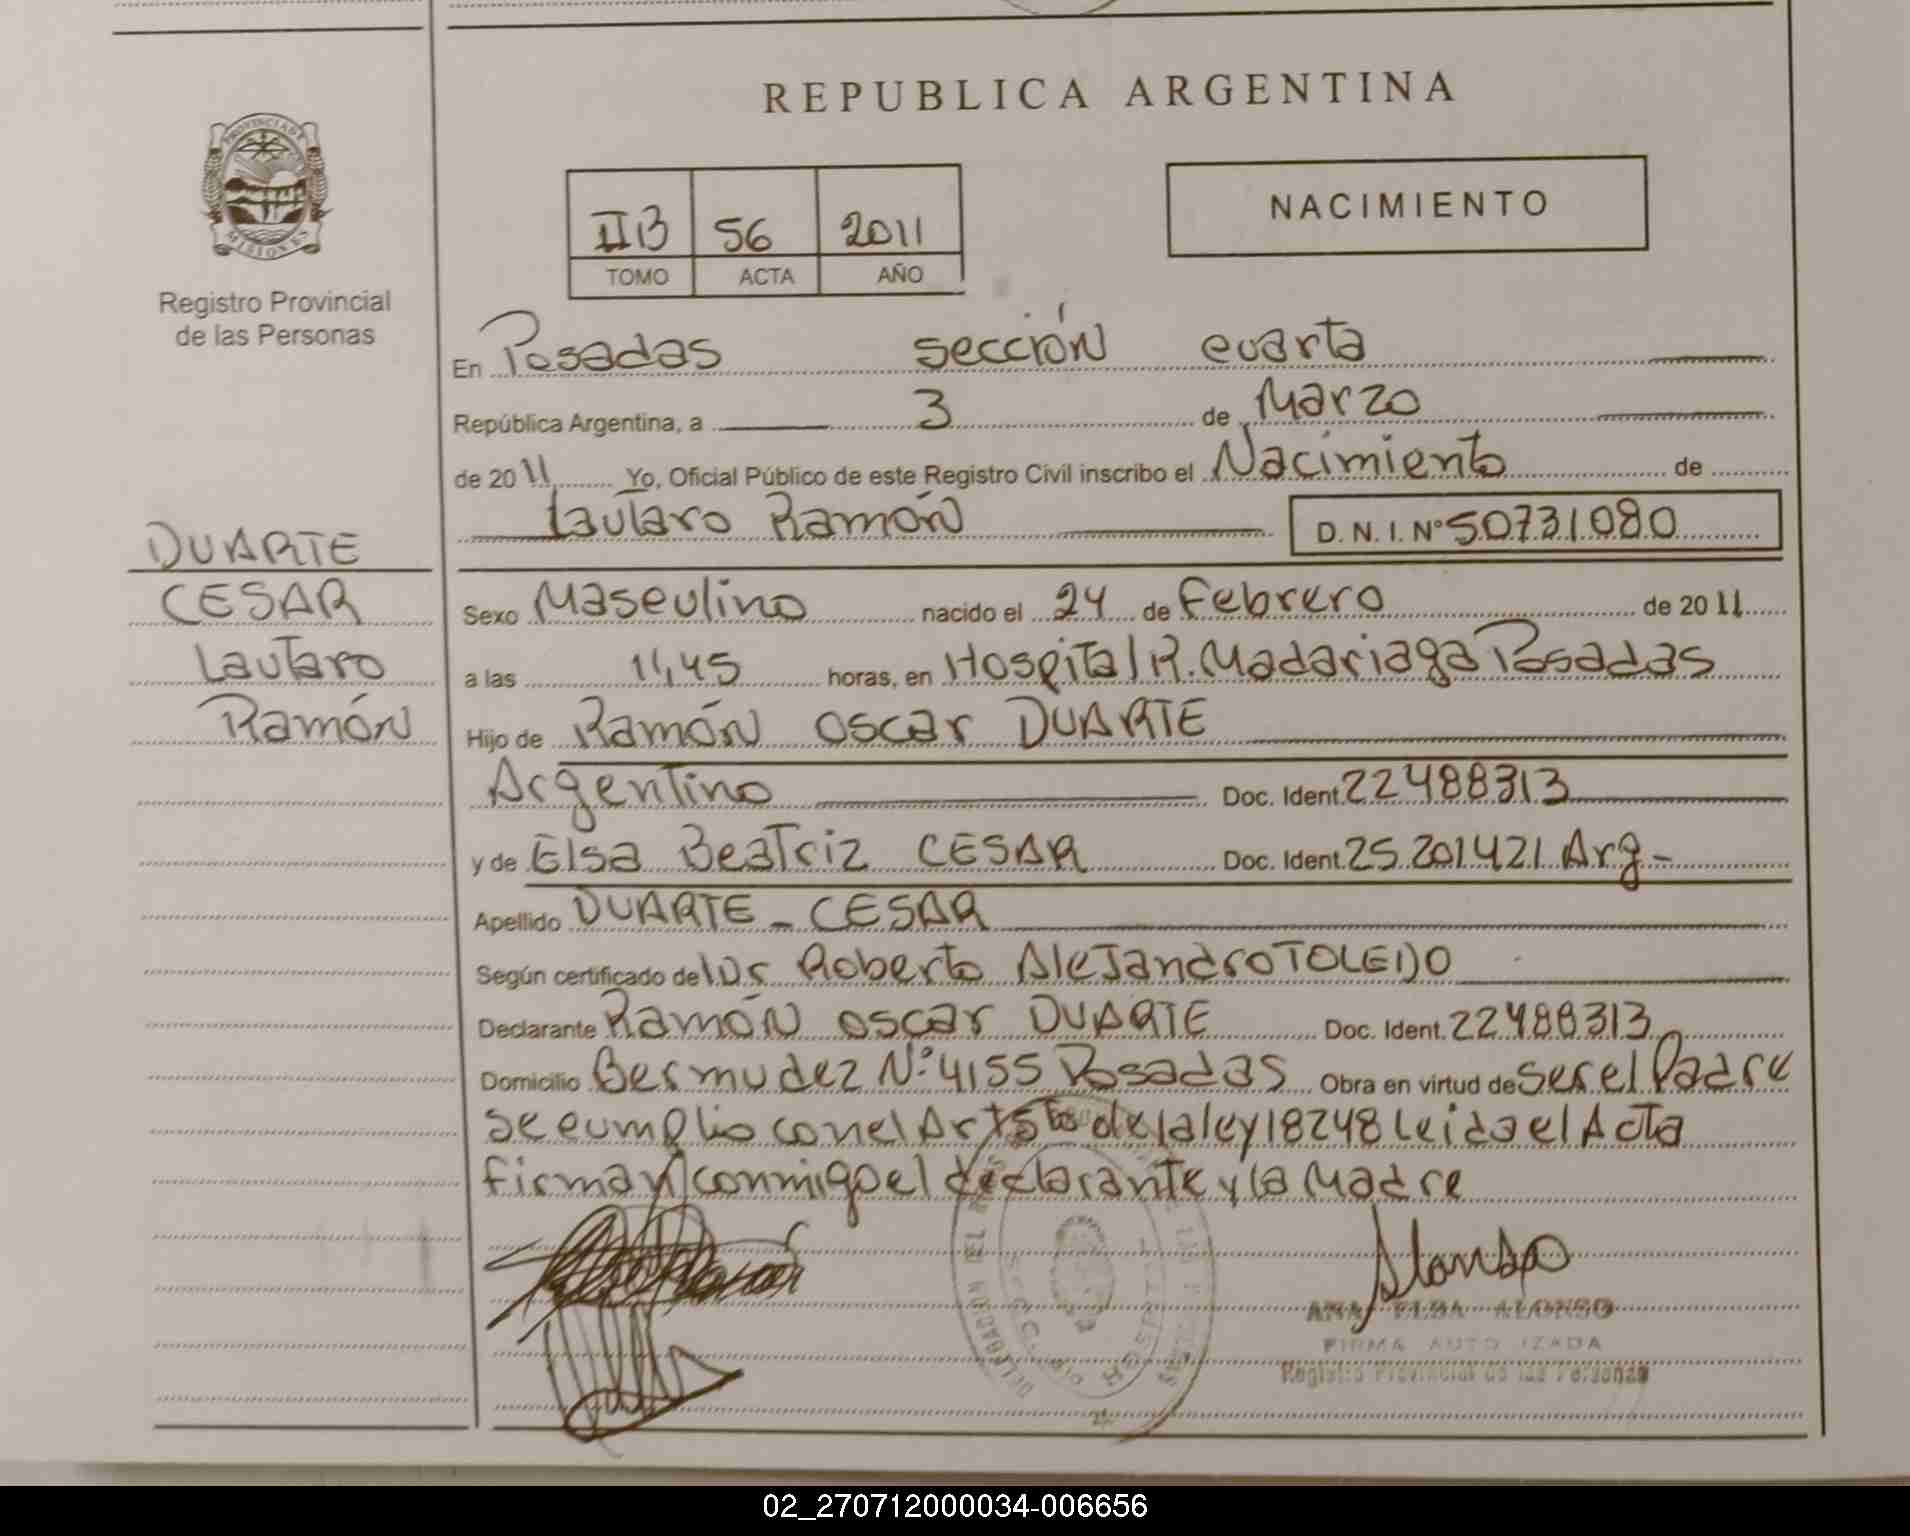 REPUBLICA ARGENTINA
PROVINCIA DE
MISIONES
Registro Provincial
de las Personas
NACIMIENTO
IIB 56 2011
TOMO ACTA AÑO
DUARTE
CESAR
Lautaro
Ramón
En Posadas sección cuarta
República Argentina, a 3 de Marzo
de 2011 Yo, Oficial Público de este Registro Civil inscribo el Nacimiento de
Lautaro Ramón D.N.I. Nº 50731080
Sexo Masculino nacido el 24 de Febrero de 2011
a las 11,45 horas, en Hospital R. Madariaga Posadas
Hijo de Ramón Oscar DUARTE
Argentino Doc. Ident. 22488313
y de Elsa Beatriz CESAR Doc. Ident. 25.201421 Arg-
Apellido DUARTE - CESAR
Según certificado de Roberto Alejandro TOLEDO
Declarante Ramón Oscar DUARTE Doc. Ident. 22488313
Domicilio Bermudez Nº 4155 Posadas Obra en virtud de ser el Padre
se cumplio con el Art 5to de la ley 18248 Leida el Acta
firman conmigo el declarante y la Madre
Alonso
ANA ELBA ALONSO
FIRMA AUTORIZADA
Registro Provincial de las Personas
02_270712000034-006656